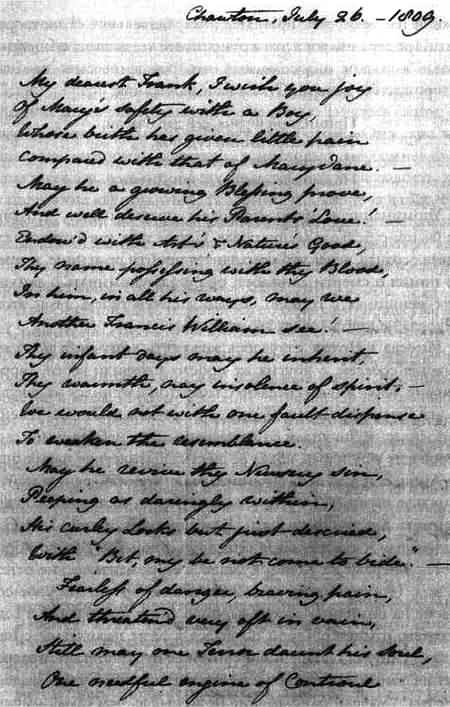 Chawton, July 26. – 1809.
My dearest Frank, I wish you joy
Of Mary's safety with a Boy,
Whose birth has given little pain
Compared with that of Mary Jane. –
May he a growing Blessing prove,
And well deserve his Parents' Love! –
Endow'd with Art's & Nature's Good,
Thy name possessing with thy Blood,
In him, in all his ways, may we
Another Francis William see! –
Thy infant days may he inherit,
Thy warmth, nay insolence of spirit; –
We would not with one fault dispense
To weaken the resemblance.
May he revive thy Nursery sin,
Peeping as daringly within,
His curley Locks but just descried,
With "Bet, my be not come to bide." –
Fearless of danger, braving pain,
And threaten'd very oft in vain,
Still may one Terror daunt his Soul,
One needful engine of Controul